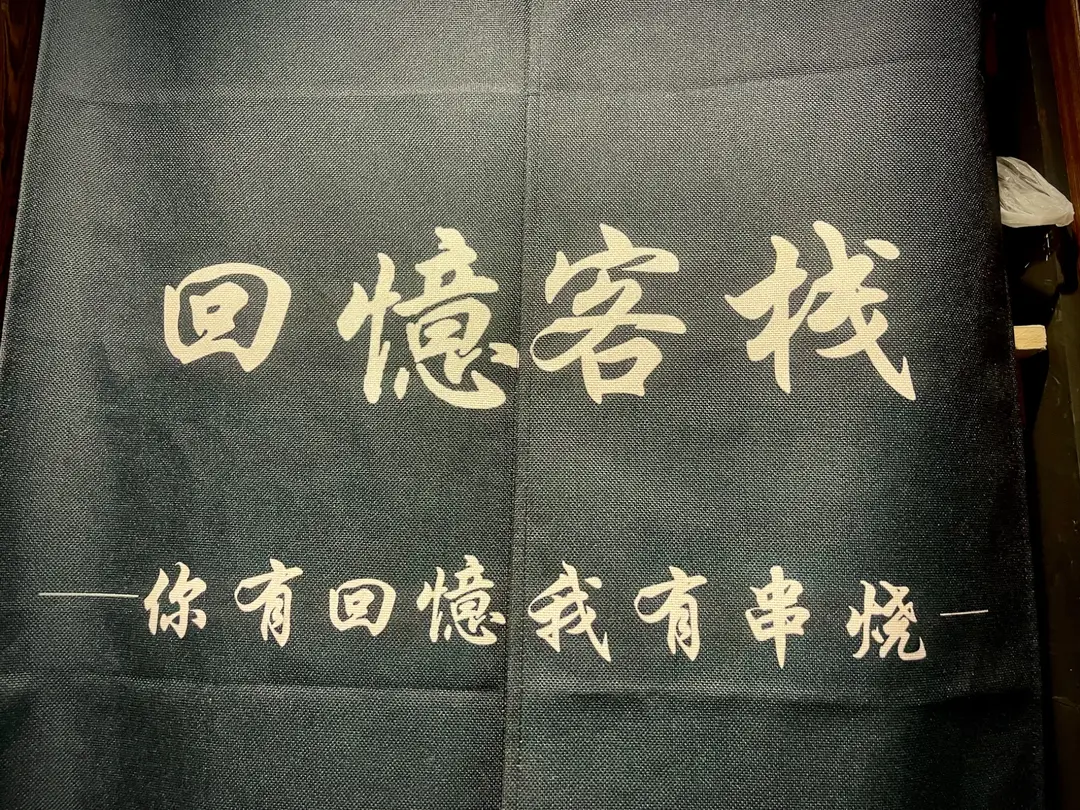 回憶客栈
你有回憶我有串烧